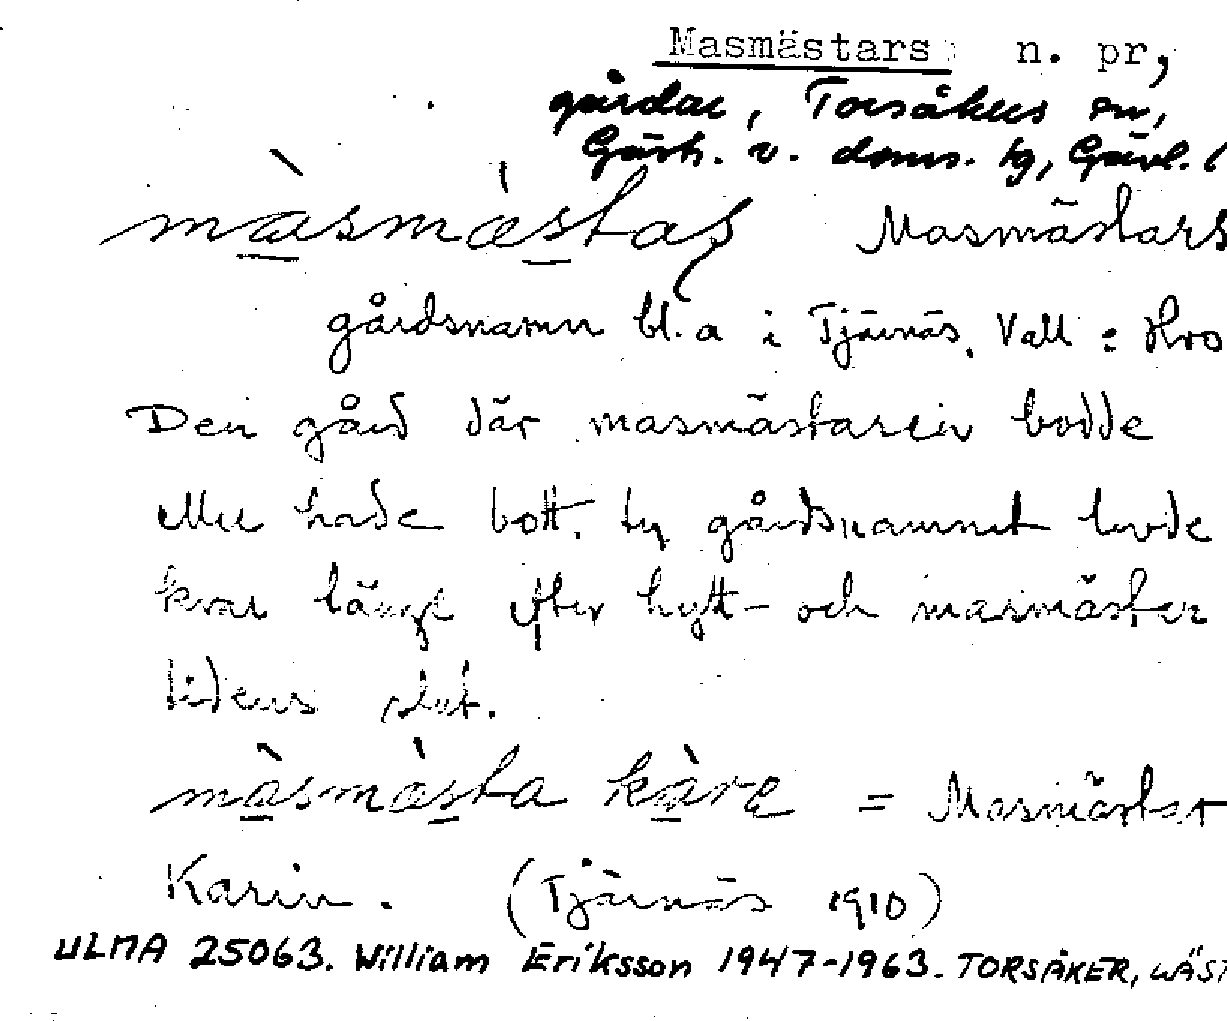 Masmästars n. pr,
gårdar, Torsåkers sn,
Gästr. v. doms. tg, Gävl. l
màsmàstaʂ Masmästars
gårdsnamn bl. a i Tjärnäs, Vall
Den gård där masmästaren bodde
eller hade bott, ty gårdsnamnet levde
kvar långt efter hytt- och masmäster
tidens slut.
màsmæ̀sta kàre = Masmästar
Karin. (Tjärnäs 1910)
ULMA 25063. William Eriksson 1947-1963. TORSÅKER, GÄST